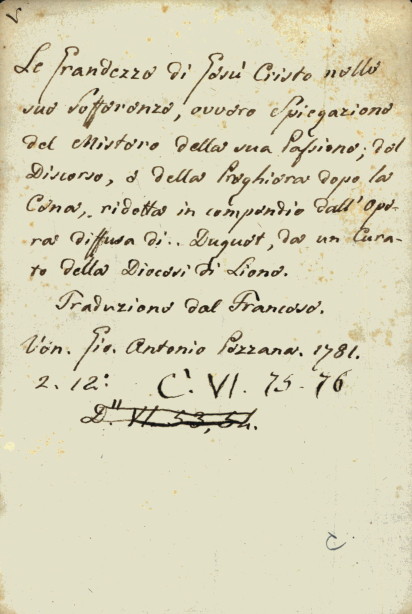 V
Le Grandezze di Gesù Cristo nelle
sue sofferenze, ovvero Spiegazione
del Mistero della sua Passione; del
Discorso, e della Preghiera dopo la
Cena, ridotta in compendio dall'Ope-
ra diffusa di.. Duguet, da un Cura-
to della Diocesi di Lione.
Traduzione dal Francese.
Ven. Gio. Antonio Pezzana. 1781.
2. 12.° C. VI. 75-76
D. VI. 53, 54.
C.